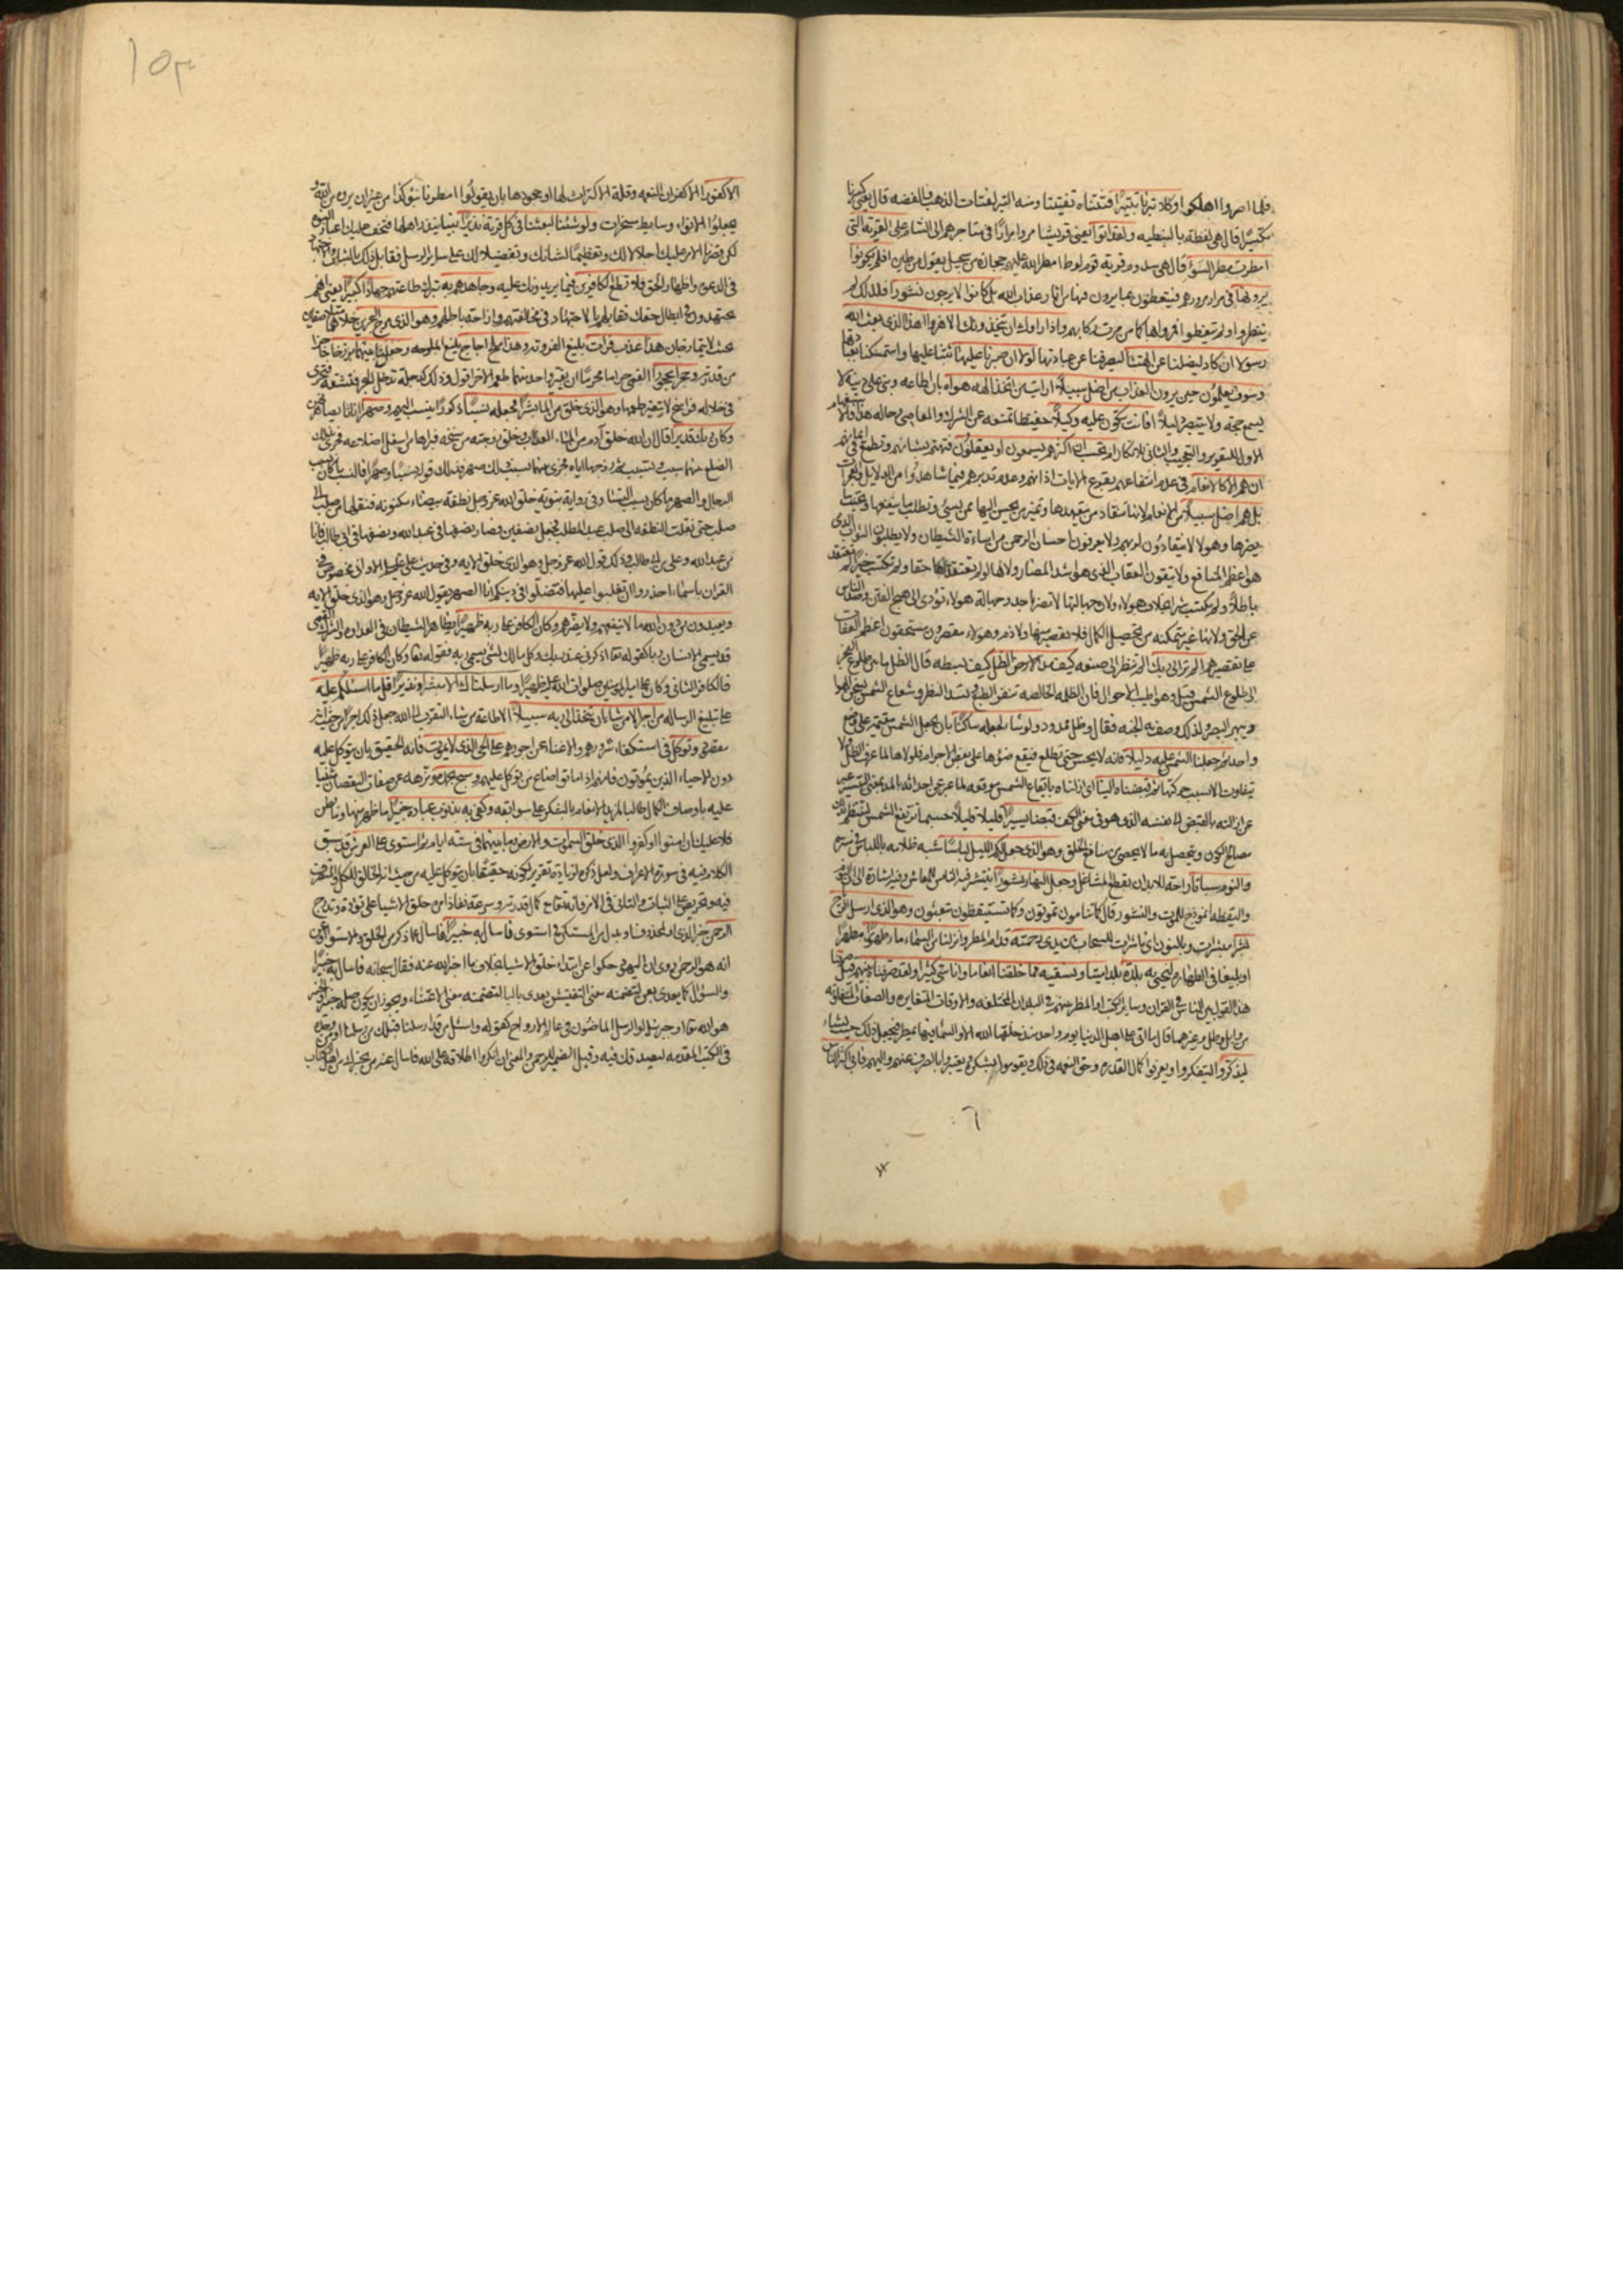 فلما اصروا اهلكوا وكلا تبرنا تتبيرا فتتناه تفتيتا ومنه التبر لفتات الذهب والفضة قال يعني كسرنا
تكسيرا قال هي لفظة بالنبطيه ولقد اتوا يعني قريشا مروا مرارا في متاجرهم الى الشام على القرية التي
امطرت مطر السوء قال هي سدوم قرية قوم لوط امطر الله عليهم حجارة من سجيل يقول من طين افلم يكونوا
يرونها في مرار مرورهم فيتعظون بما يرون فيها من اثار عذاب الله بل كانوا لا يرجون نشورا فلذلك لم
ينظروا ولم يتعظوا فمروا بها كما مرت ركابهم واذا راوك ان يتخذونك الا هزوا اهذا الذي بعث الله
رسولا ان كاد ليضلنا عن الهتنا ليصرفنا عن عبادتها لولا ان صبرنا عليها ثبتنا عليها واستمسكنا بعبادتها
وسوف يعلمون حين يرون العذاب من اضل سبيلا ارايت من اتخذ الهه هواه بان اطاعه وبنى عليه دينه لا
يسمع حجة ولا يتبصر دليلا افانت تكون عليه وكيلا حفيظا تمنعه عن الشرك والمعاصي وحاله هذا فالاستفهام
الاول للتقرير والتعجيب والثاني للانكار ام تحسب ان اكثرهم يسمعون او يعقلون فتهتم بشانهم وتطمع في ايمانهم
ان هم الا كالانعام في عدم انتفاعهم بقرع الايات اذانهم وعدم تدبرهم فيما شاهدوا من الدلايل والمعجزات
بل هم اضل سبيلا من الانعام لانها تنقاد من يتعهدها وتميز من يحسن اليها ممن يسيئ وتطلب ما ينفعها وتجتنب ما
يضرها وهولا لا ينقادون لربهم ولا يعرفون احسان الرحمن من اساءة الشيطان ولا يطلبون الثواب الذي
هو اعظم المنافع ولا يتقون العقاب الذي هو اشد المضار ولانها لو لم تعتقد حقا ولم تكتسب خيرا لم تعتقد
باطلا ولم تكتسب شرا بخلاف هولاء ولان جهالتها لا تضر باحد وجهالة هولاء تؤدي الى هيج الفتن وصد الناس
عن الحق ولانها غير متمكنه من تحصيل الكمال فلا تقصير منها ولا ذم وهولاء مقصرون مستحقون اعظم العقاب
على تقصيرهم الم تر الى ربك الم تنظر الى صنعه كيف مد الظل كيف بسطه قال الظل ما بين طلوع الفجر
الى طلوع الشمس قيل وهو اطيب الاحوال فان الظلمه الخالصه تنفر الطبع وتسد النظر وشعاع الشمس يسخن الهوا
ويبهر البصر ولذلك وصف به الجنه فقال وظل ممدود ولو شاء لجعله ساكنا بان يجعل الشمس مقيمة على وضع
واحد ثم جعلنا الشمس عليه دليلا فانه لا يحس حتى تطلع فيقع ضوؤها على بعض الاجرام فلولاها لما عرف الظل ولا
يتفاوت الا بسبب حركتها ثم قبضناه الينا اي ازلناه بايقاع الشمس موقعه لما عبر عن احداثه بالمد بمعنى التسيير عبر
عن ازالته بالقبض الى نفسه الذي هو في معنى الكف قبضا يسيرا قليلا قليلا حسبما ترتفع الشمس لتنتظم بذلك
مصالح الكون ويتحصل به ما لا يحصى من منافع الخلق وهو الذي جعل لكم الليل لباسا شبه ظلامه باللباس في ستره
والنوم سباتا راحة للابدان بقطع المشاغل وجعل النهار نشورا ينتشر فيه الناس للمعاش وفيه اشارة الى ان النوم
واليقظه انموذج للموت والنشور قال كما تنامون تموتون وكما تستيقظون تبعثون وهو الذي ارسل الرياح
نشرا مبشرات وبالنون اي ناشرات للسحاب بين يدي رحمته قدام المطر وانزلنا من السماء ماء طهورا مطهرا
او بليغا في الطهارة لنحيي به بلدة ميتا ونسقيه مما خلقنا انعاما واناسي كثيرا ولقد صرفناه بينهم قيل صرفنا
هذا القول بين الناس في القران وساير الكتب او المطر بينهم في البلدان المختلفه والاوقات المتغايره والصفات المتفاوته
من وابل وطل وغيرهما قال ما اتى على اهل الدنيا يوم واحد منذ خلقها الله الا والسماء فيها تمطر فيجعل ذلك حيث يشاء
ليذكروا ليتفكروا ويعرفوا كمال القدره وحق النعمه في ذلك ويقوموا بشكره او يعتبروا بالصرف عنهم واليهم فابى اكثر الناس
١٥٣
الا كفورا الا كفران النعمه وقلة الاكتراث لها او جحودها بان يقولوا امطرنا بنوء كذا من غير ان يروه من الله و
يجعلوا الانواء وسايط مسخرات ولو شئنا لبعثنا في كل قرية نذيرا نبيا ينذر اهلها فتخف عليك اعباء النبوة
لكن قصرنا الامر عليك اجلالا لك وتعظيما لشانك وتفضيلا لك على ساير الرسل فقابل ذلك بالثبات والاجتهاد
في الدعوة واظهار الحق فلا تطع الكافرين فيما يريدونك عليه وجاهدهم به بترك طاعتهم جهادا كبيرا يعني انهم
يجتهدون في ابطال حقك فقابلهم بالاجتهاد في مخالفتهم وازاحة باطلهم وهو الذي مرج البحرين خلاهما متلاصقين
بحيث لا يتمازجان هذا عذب فرات بليغ العذوبه وهذا ملح اجاج بليغ الملوحه وجعل بينهما برزخا حاجزا
من قدرته وحجرا محجورا
في خلاله فراسخ لا يتغير طعمها وهو الذي خلق من الماء بشرا فجعله نسبا ذكورا ينسب اليهم وصهرا اناثا يصاهر بهن
وكان ربك قديرا قال ان الله خلق ادم من الماء العذب وخلق زوجته من سنخه فبراها من اسفل اضلاعه فجرى بذلك
الضلع بينهما سبب ونسب ثم زوجها اياه فجرى بينهما بسبب ذلك صهر فذلك قوله نسبا وصهرا فالنسب ما كان بسبب
الرجال والصهر ما كان بسبب النساء وفي رواية نبويه خلق الله عز وجل نطفة بيضاء مكنونه فنقلها من صلب الى
صلب حتى نقلت النطفه الى صلب عبد المطلب فجعل نصفين فصار نصفها في عبد الله ونصفها في ابي طالب فانا
من عبد الله وعلي من ابي طالب وذلك قول الله عز وجل وهو الذي خلق الاية وفي حديث علي عليه السلم الا واني مخصوص في
القران باسماء احذروا ان تغلبوا عليها فتضلوا في دينكم انا الصهر يقول الله عز وجل وهو الذي خلق الايه
ويعبدون من دون الله ما لا ينفعهم ولا يضرهم وكان الكافر على ربه ظهيرا يظاهر الشيطان في العداوه والشرك القمي
قد يسمى الانسان ربا كقوله تعالى اذكرني عند ربك وكل مالك لشئ يسمى ربه فقوله تعالى وكان الكافر على ربه ظهيرا
فالكافر الثاني وكان على امير المؤمنين صلوات الله عليه ظهيرا وما ارسلناك الا مبشرا ونذيرا قل ما اسئلكم عليه
على تبليغ الرساله من اجر الا من شاء ان يتخذ الى ربه سبيلا الا طاعة من شاء التقرب الى الله جعل ذلك اجرا من حيث انه
مقصوده وتوكل في استكفاء شرورهم والاغناء عن اجورهم على الحي الذي لا يموت فانه الحقيق بان يتوكل عليه
دون الاحياء الذين يموتون فانهم اذا ماتوا ضاع من توكل عليهم وسبح بحمده ونزهه عن صفات النقصان مثنيا
عليه باوصاف الكمال طالبا لمزيد الانعام بالشكر على سوابغه وكفى به بذنوب عباده خبيرا ما ظهر منها وما بطن
فلا عليك ان امنوا او كفروا الذي خلق السموات والارض وما بينهما في ستة ايام ثم استوى على العرش قد سبق
الكلام فيه في سورة الاعراف ولعل ذكره لزيادة تقرير لكونه حقيقا بان يتوكل عليه من حيث انه الخالق للكل والمتصرف
فيه وتحريض على الثبات والتاني في الامر فانه تعالى مع كمال قدرته وسرعة نفاذ امره خلق الاشياء على تؤدة وتدرج
الرحمن خبر الذي او لمحذوف او بدل من المستكن في استوى فاسال به خبيرا فاسال عما ذكر من الخلق والاستواء او عن
انه هو الرحمن روي ان اليهود حكوا عن ابتداء خلق الاشياء بخلاف ما اخبر الله عنه فقال سبحانه فاسال به خبيرا
والسؤال كما يعدى بعن لتضمنه معنى التفتيش يعدى بالباء لتضمنه معنى الاعتناء ويجوز ان يكون صلة خبيرا والخبير
هو الله تعالى او جبرئيل او الرسل الماضون في عالم الارواح كقوله واسئل من قد ارسلنا قبلك من رسلنا او من وجده
في الكتب المقدمه ليصدقك فيه وقيل الضمير للرحمن والمعنى ان انكروا اطلاقه على الله فاسال عنه من يخبرك من اهل الكتاب